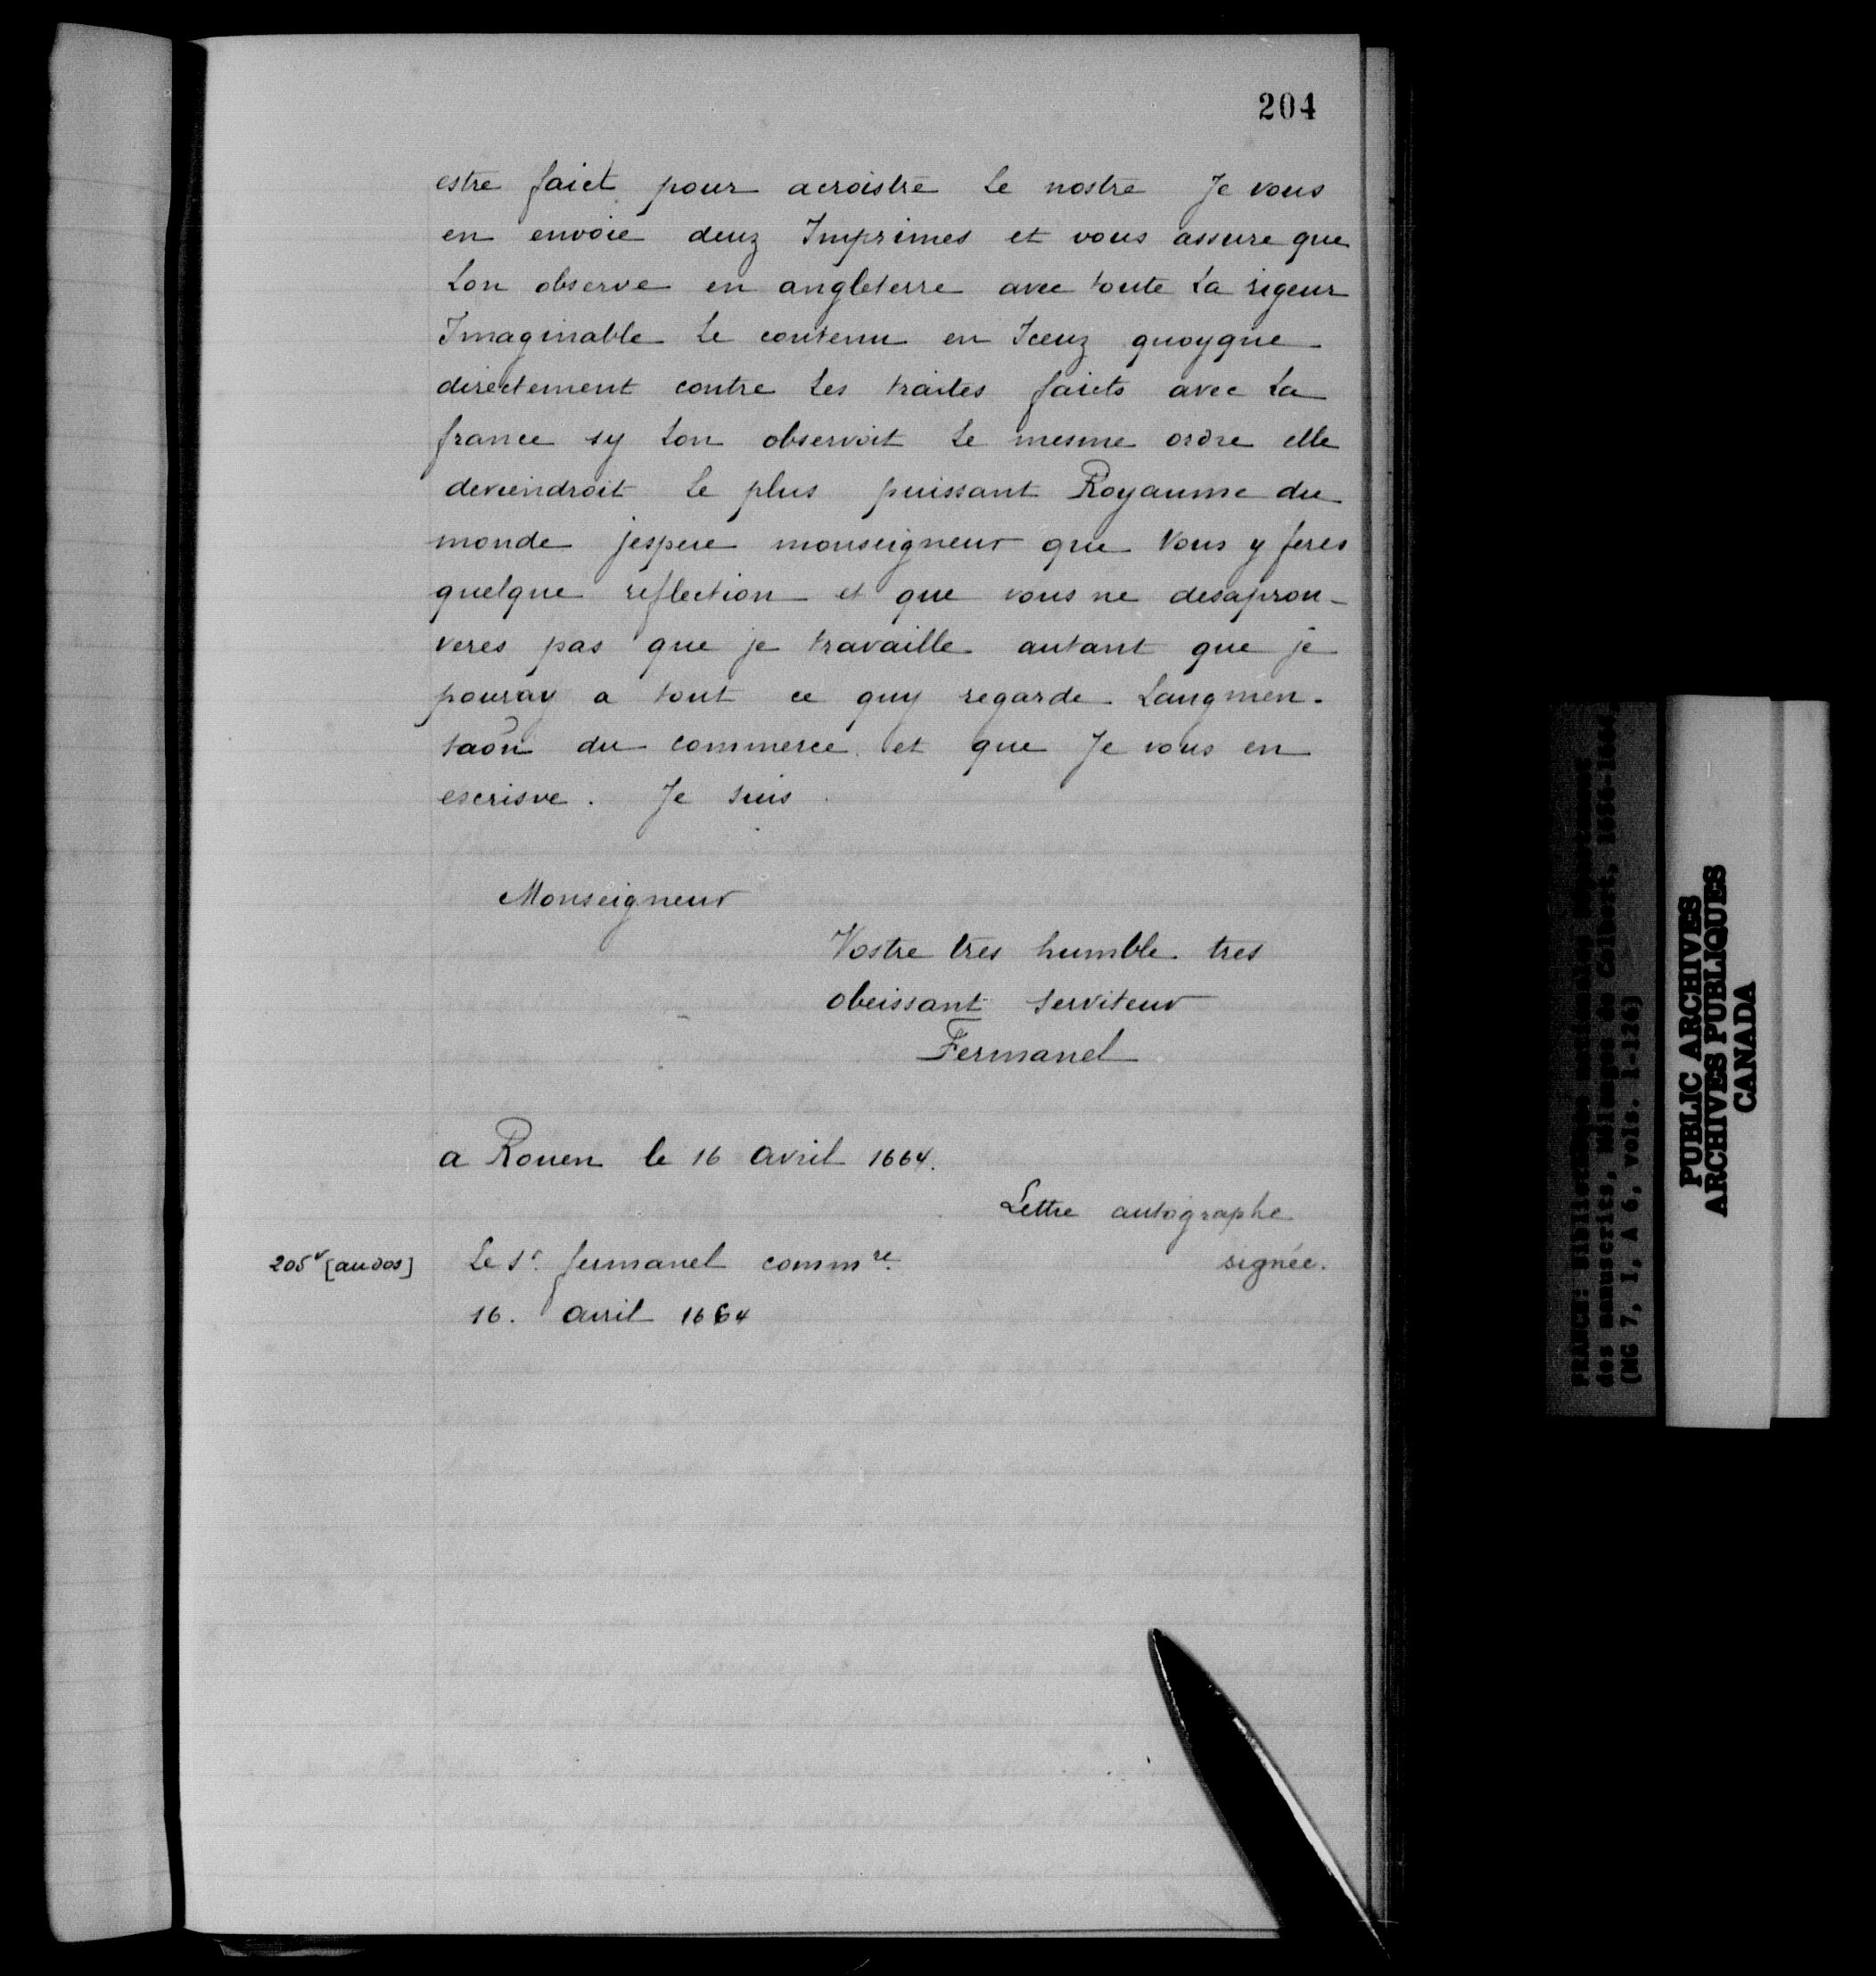 204
estre faict pour acroistre Le nostre Je vous
en envoie deuz Imprimes et vous assure que
Lon observe en angleterre avec toute La rigeur
Imaginable Le contenu en Iceuz quoyque
directement contre Les traites faicts avec La
france sy Lon observoit Le mesme ordre elle
deviendroit Le plus puissant Royaume du
monde jespere monseigneur que Vous y feres
quelque reflection et que vous ne desaprou-
veres pas que je travaille autant que je
pouray a tout ce quy regarde Laugmen-
taõn du commerce et que Je vous en
escrisve. Je suis
Monseigneur
Vostre tres humble tres
obeissant serviteur
Fermanel
a Rouen le 16 avril 1664.
Lettre autographe
signée.
205v [au dos] Le Sr. fermanel commre.
16. avril 1664
PUBLIC ARCHIVES
ARCHIVES PUBLIQUES
CANADA
des manuscrits, Mélanges de Colbert, 1656-
(MG 7, I, A 6, vols. 1-126)